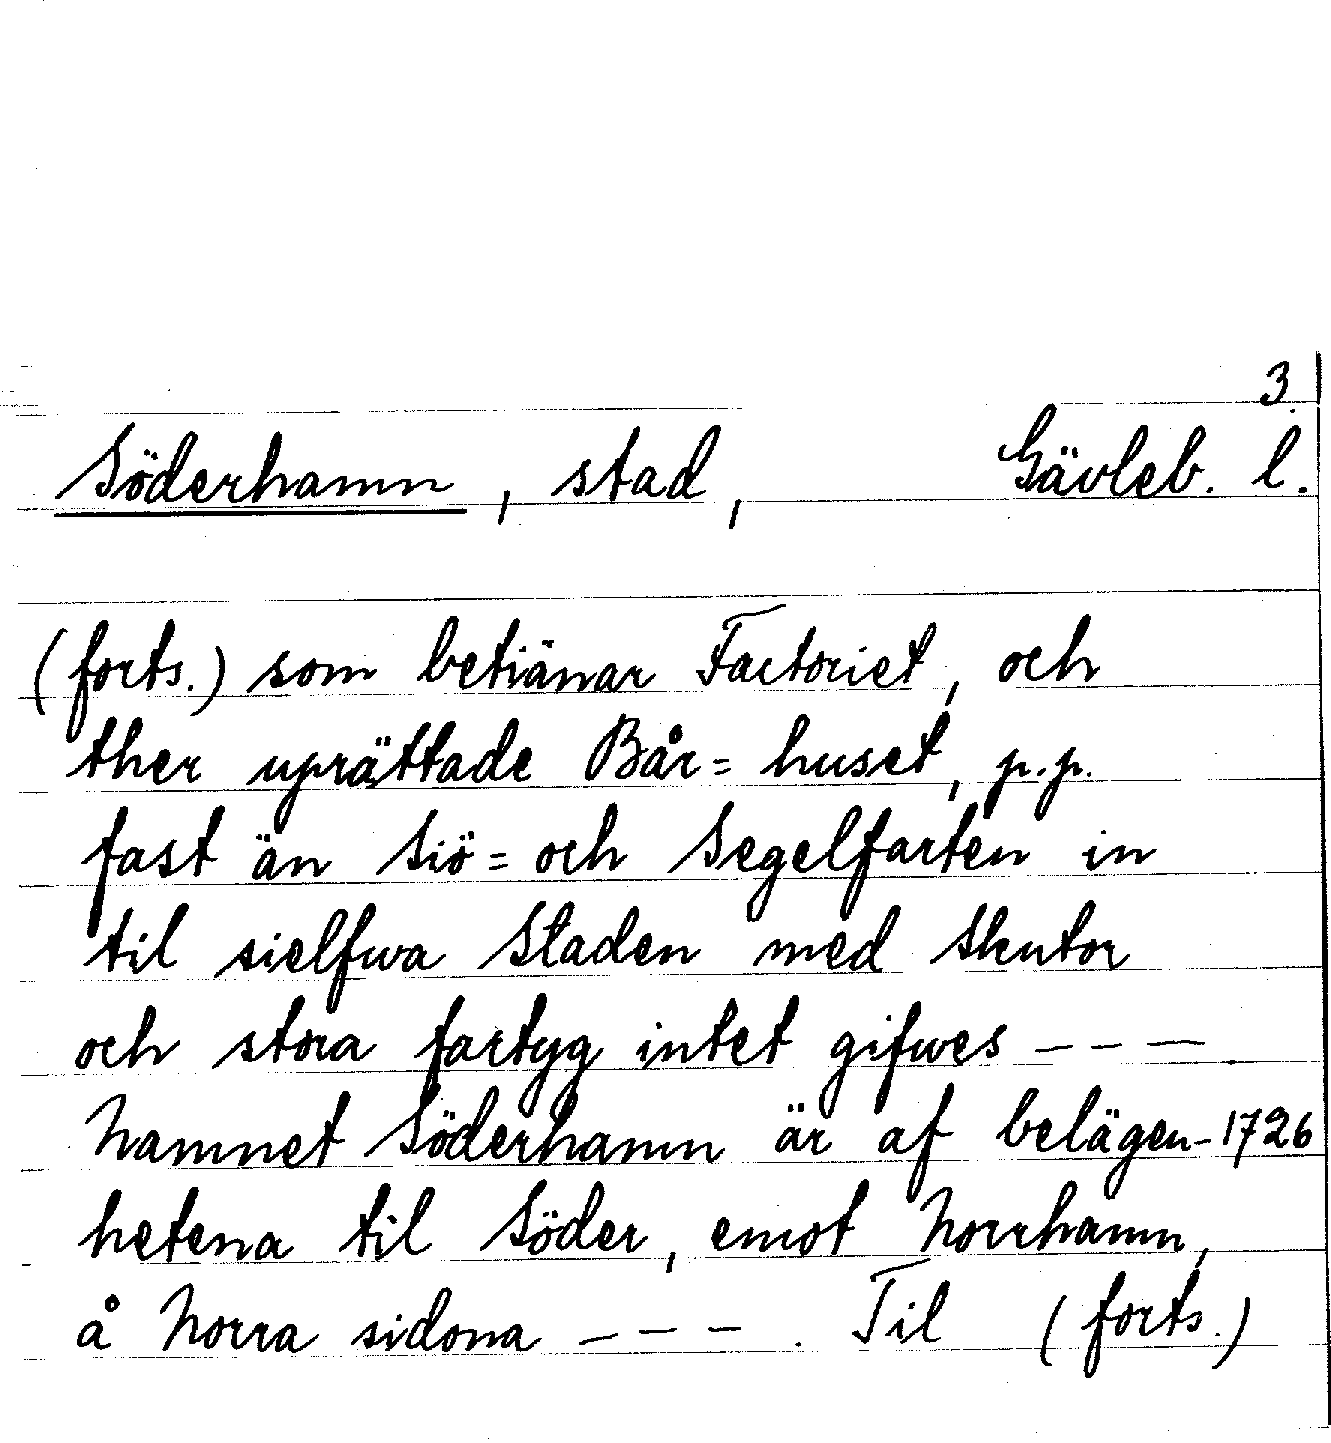 3.
Söderhamn, stad, Gävleb. l.
(forts.) som betiänar Factoriet, och
ther uprättade Bår=huset, p.p.
fast än Siö=och Segelfarten in
til sielfwa Staden med Skutor
och stora fartyg intet gifwes ---
Namnet Söderhamn är af belägen- 1726
hetena til Söder, emot Norrhamn,
å Norra sidona ---. Til (forts.)